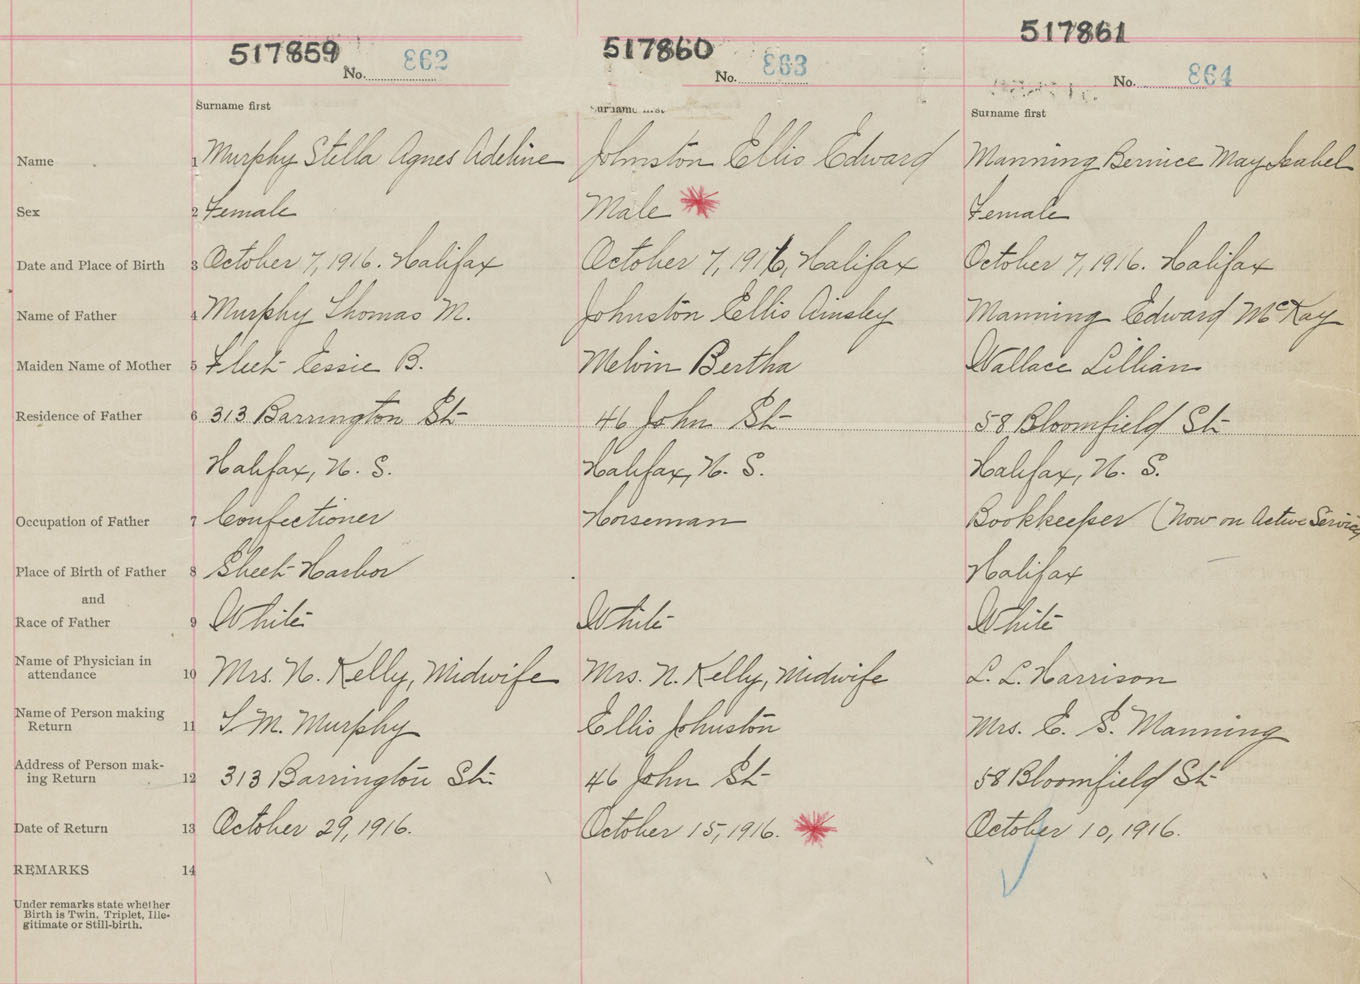 517859 517860 517861
No. 862 No. 863 No. 864
Surname first Surname first Surname first
Name 1 Murphy Stella Agnes Adeline Johnston Ellis Edward Manning Bernice May Isabel
Sex 2 Female Male Female
Date and Place of Birth 3 October 7, 1916. Halifax October 7, 1916, Halifax October 7, 1916. Halifax
Name of Father 4 Murphy Thomas M. Johnston Ellis Ainsley Manning Edward McKay
Maiden Name of Mother 5 Essie B. Melvin Bertha Wallace Lillian
Residence of Father 6 313 Barrington St 46 John St 58 Bloomfield St
Halifax, N. S. Halifax, N. S. Halifax, N. S.
Occupation of Father 7 Confectioner Horseman Bookkeeper (Now on Active Service)
Place of Birth of Father 8 Sheet Harbor Halifax
and
Race of Father 9 White White White
Name of Physician in
attendance 10 Mrs. N. Kelly, Midwife Mrs. N. Kelly, Midwife L. L. Harrison
Name of Person making
Return 11 T M. Murphy Ellis Johnston Mrs. E. S. Manning
Address of Person mak-
ing Return 12 313 Barrington St. 46 John St 58 Bloomfield St
Date of Return 13 October 29, 1916. October 15, 1916. October 10, 1916.
REMARKS 14
Under remarks state whether
Birth is Twin, Triplet, Ille-
gitimate or Still-birth.